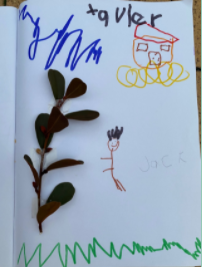 xavier
JaCk